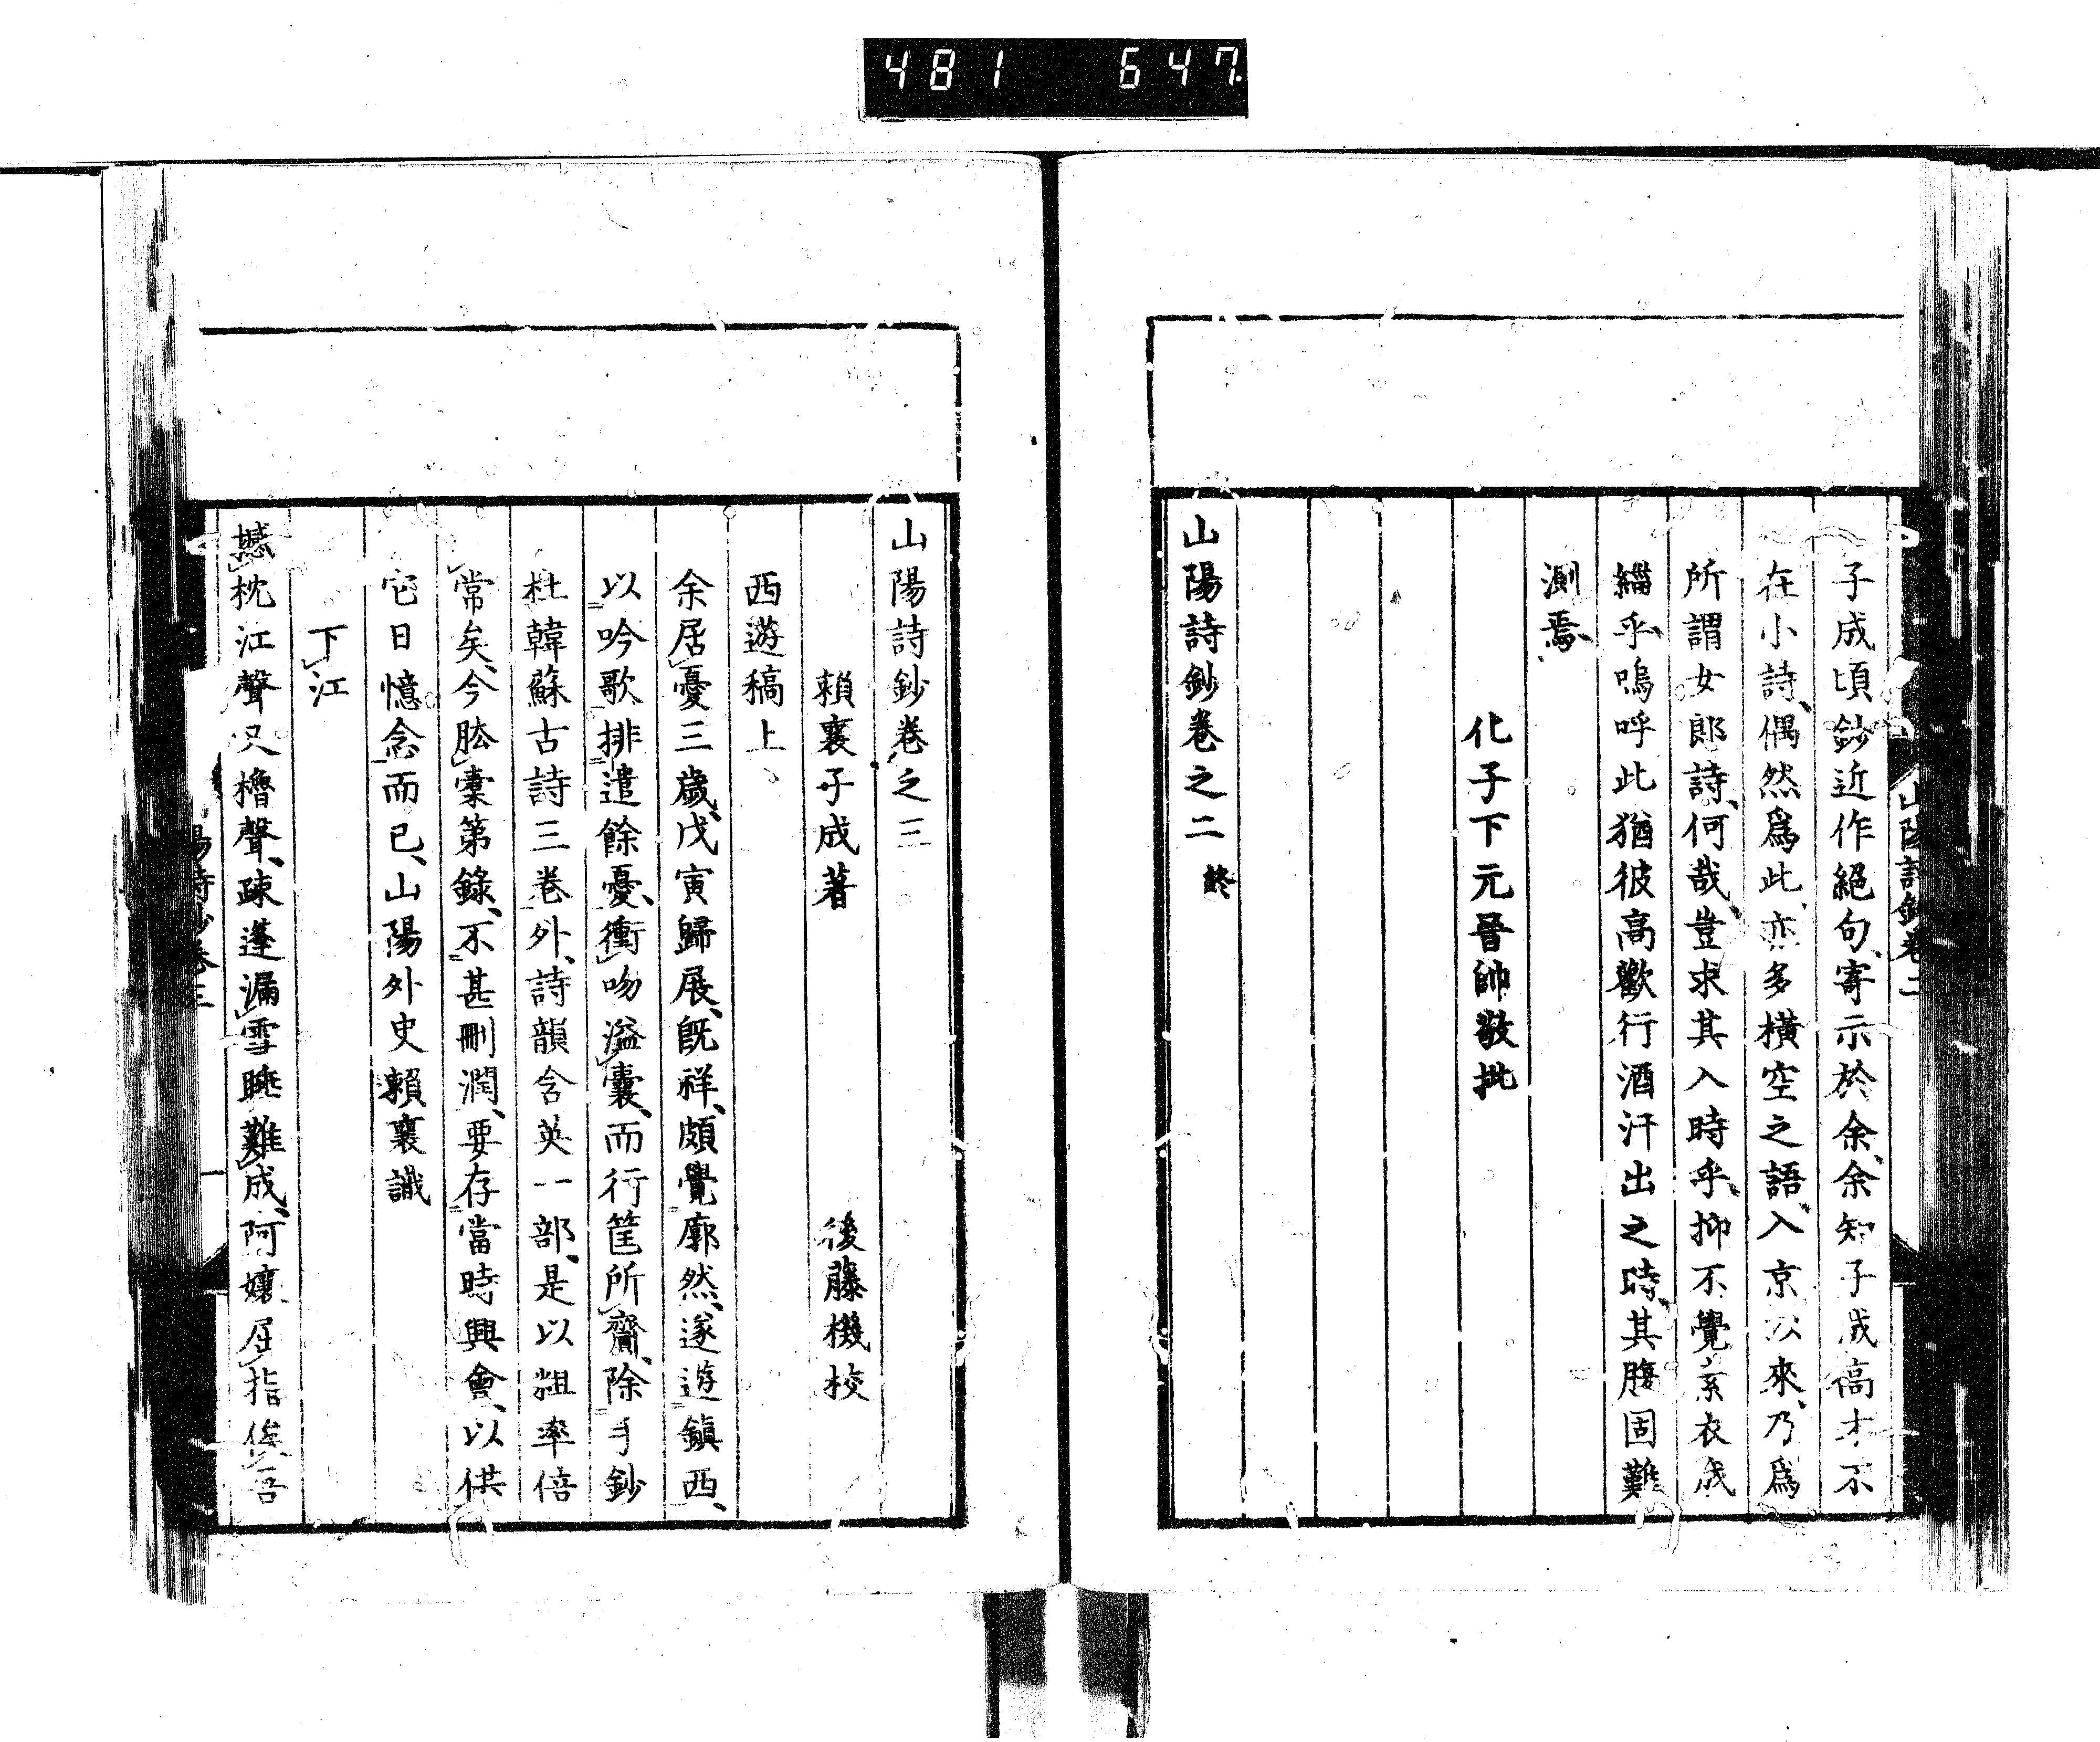 481 647.
子成頃鈔近作絕句、寄示於余、余知子成高才不
在小詩、偶然爲此、亦多橫空之語、入京以來、乃爲
所謂女郎詩、何哉、豈求其入時乎、抑不覺素衣成
緇乎、嗚呼此猶彼高歡行酒汗出之時、其腹固難
測焉、
化子下元晉帥敬批
山陽詩鈔卷之二 終
山陽詩鈔卷二
山陽詩鈔卷之三
賴襄子成著 後藤機校
西遊稿上
余居憂三歲、戊寅歸展、旣祥、頗覺廓然、遂遊鎭西、
以吟歌排遣餘憂、衝吻溢囊、而行筐所齎、除手鈔
杜韓蘇古詩三卷外、詩韻含英一部、是以粗率倍
常矣、今胠橐第錄、不甚刪潤、要存當時興會、以供
它日憶念而已、山陽外史賴襄識
下江
撼枕江聲又櫓聲、疎蓬漏雪睡難成、阿孃屈指俟吾
陽詩鈔卷三 一